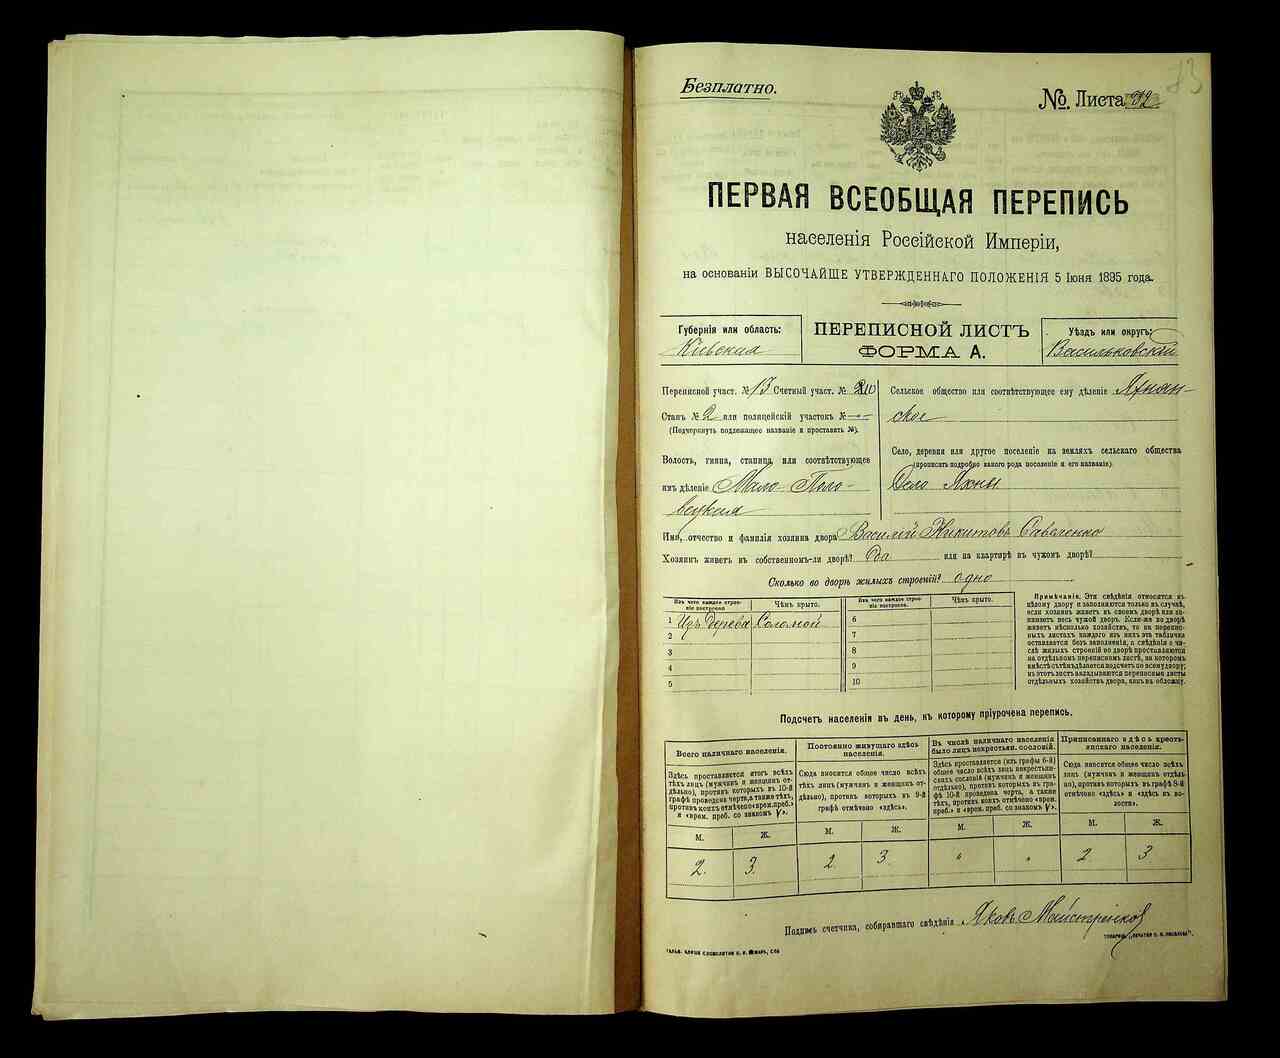 Безплатно.
№. Листа 92.
73
ПЕРВАЯ ВСЕОБЩАЯ ПЕРЕПИСЬ
населенія Россійской Имперіи,
на основаніи ВЫСОЧАЙШЕ УТВЕРЖДЕННАГО ПОЛОЖЕНІЯ 5 Іюня 1895 года.
Губернія или область:
Кіевская
ПЕРЕПИСНОЙ ЛИСТЪ
ФОРМА А.
Уѣздъ или округъ:
Васильковскій
Переписной участ. № 13 Счетный участ. №
Станъ № 2 или полицейскій участокъ №
(Подчеркнуть подлежащее названіе и проставить №).
Волость, гмина, станица или соотвѣтствующее
имъ дѣленіе Мало-Поло-
вецкая
Сельское общество или соотвѣтствующее ему дѣленіе Яхнян-
ское
Село, деревня или другое поселеніе на земляхъ сельскаго общества
(прописать подробно какого рода поселеніе и его названіе).
Село Яхны
Имя, отчество и фамилія хозяина двора Василій Никитовъ Савченко
Хозяинъ живетъ въ собственномъ-ли дворѣ? Да или на квартирѣ въ чужомъ дворѣ?
Сколько во дворѣ жилыхъ строеній? одно
Изъ чего каждое строе-
ніе построено
Чѣмъ крыто.
Изъ чего каждое строе-
ніе построено.
Чѣмъ крыто.
1 Изъ дерева Соломой
2
3
4
5
6
7
8
9
10
Примѣчаніе. Эти свѣдѣнія относятся къ
цѣлому двору и заполняются только въ случаѣ,
если хозяинъ живетъ въ своемъ дворѣ или за-
нимаетъ весь чужой дворъ. Если-же во дворѣ
живетъ нѣсколько хозяйствъ, то на перепис-
ныхъ листахъ каждаго изъ нихъ эта табличка
оставляется безъ заполненія, а свѣдѣнія о чи-
слѣ жилыхъ строеній во дворѣ проставляются
на отдѣльномъ переписномъ листѣ, на которомъ
вмѣстѣ съ тѣмъ дѣлается подсчетъ по всему двору;
въ этотъ листъ вкладываются переписные листы
отдѣльныхъ хозяйствъ двора, какъ въ обложку.
Подсчетъ населенія въ день, къ которому пріурочена перепись.
Всего наличнаго населенія.
Здѣсь проставляется итогъ всѣхъ
тѣхъ лицъ (мужчинъ и женщинъ от-
дѣльно), противъ которыхъ въ 10-й
графѣ проведена черта, а также тѣхъ,
противъ коихъ отмѣчено «врем. преб.»
и «врем. преб. со знакомъ V».
Постоянно живущаго здѣсь
населенія.
Сюда вносится общее число всѣхъ
тѣхъ лицъ (мужчинъ и женщинъ от-
дѣльно), противъ которыхъ въ 9-й
графѣ отмѣчено «здѣсь».
Въ числѣ наличнаго населенія
было лицъ некрестьян. сословій.
Здѣсь проставляется (изъ графы 6-й)
общее число всѣхъ лицъ некрестьян-
скихъ сословій (мужчинъ и женщинъ
отдѣльно), противъ которыхъ въ
графѣ 10-й проведена черта, а также
тѣхъ, противъ коихъ отмѣчено «врем.
преб.» и «врем. преб. со знакомъ V».
Приписаннаго здѣсь кресть-
янскаго населенія.
Сюда вносится общее число всѣхъ
лицъ (мужчинъ и женщинъ отдѣль-
но), противъ которыхъ въ графѣ 8-й
отмѣчено «здѣсь» и «здѣсь въ во-
лости».
М. Ж. М. Ж. М. Ж. М. Ж.
2. 3. 2. 3. " " 2 3
Подпись счетчика, собиравшаго свѣдѣнія Яковъ